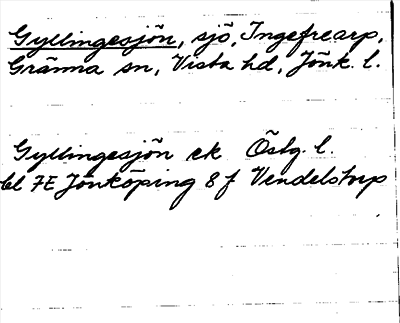 Gyllingesjön, sjö, Ingefrearp,
Gränna sn, Vista hd, Jönk. l.
Gyllingesjön ek Östg. l.
bl 7E Jönköping 8 f Vendelstorp